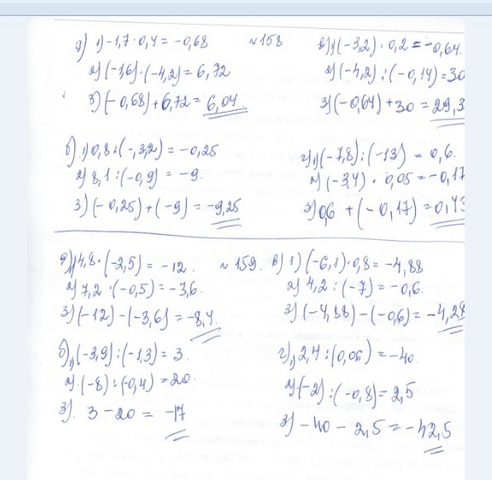 а) 1) -1,7 · 0,4 = -0,68
2) (-1,6) · (-4,2) = 6,72
3) (-0,68) + 6,72 = 6,04
№ 158
в) 1) (-3,2) · 0,2 = -0,64
2) (-4,2) : (-0,14) = 30
3) (-0,64) + 30 = 29,3
б) 1) 0,8 : (-3,2) = -0,25
2) 8,1 : (-0,9) = -9.
3) (-0,25) + (-9) = -9,25
г) 1) (-7,8) : (-13) = 0,6.
2) (-3,4) · 0,05 = -0,17
3) 0,6 + (-0,17) = 0,43
а) 1) 4,8 · (-2,5) = -12.
2) 7,2 · (-0,5) = -3,6.
3) (-12) - (-3,6) = -8,4
№ 159.
в) 1) (-6,1) · 0,8 = -4,88
2) 4,2 : (-7) = -0,6.
3) (-4,88) - (-0,6) = -4,28
б) 1) (-3,9) : (-1,3) = 3.
2) (-8) : (-0,4) = 20.
3). 3 - 20 = -17
г) 1) 2,4 : (0,06) = -40.
2) (-2) : (-0,8) = 2,5
3) -40 - 2,5 = -42,5